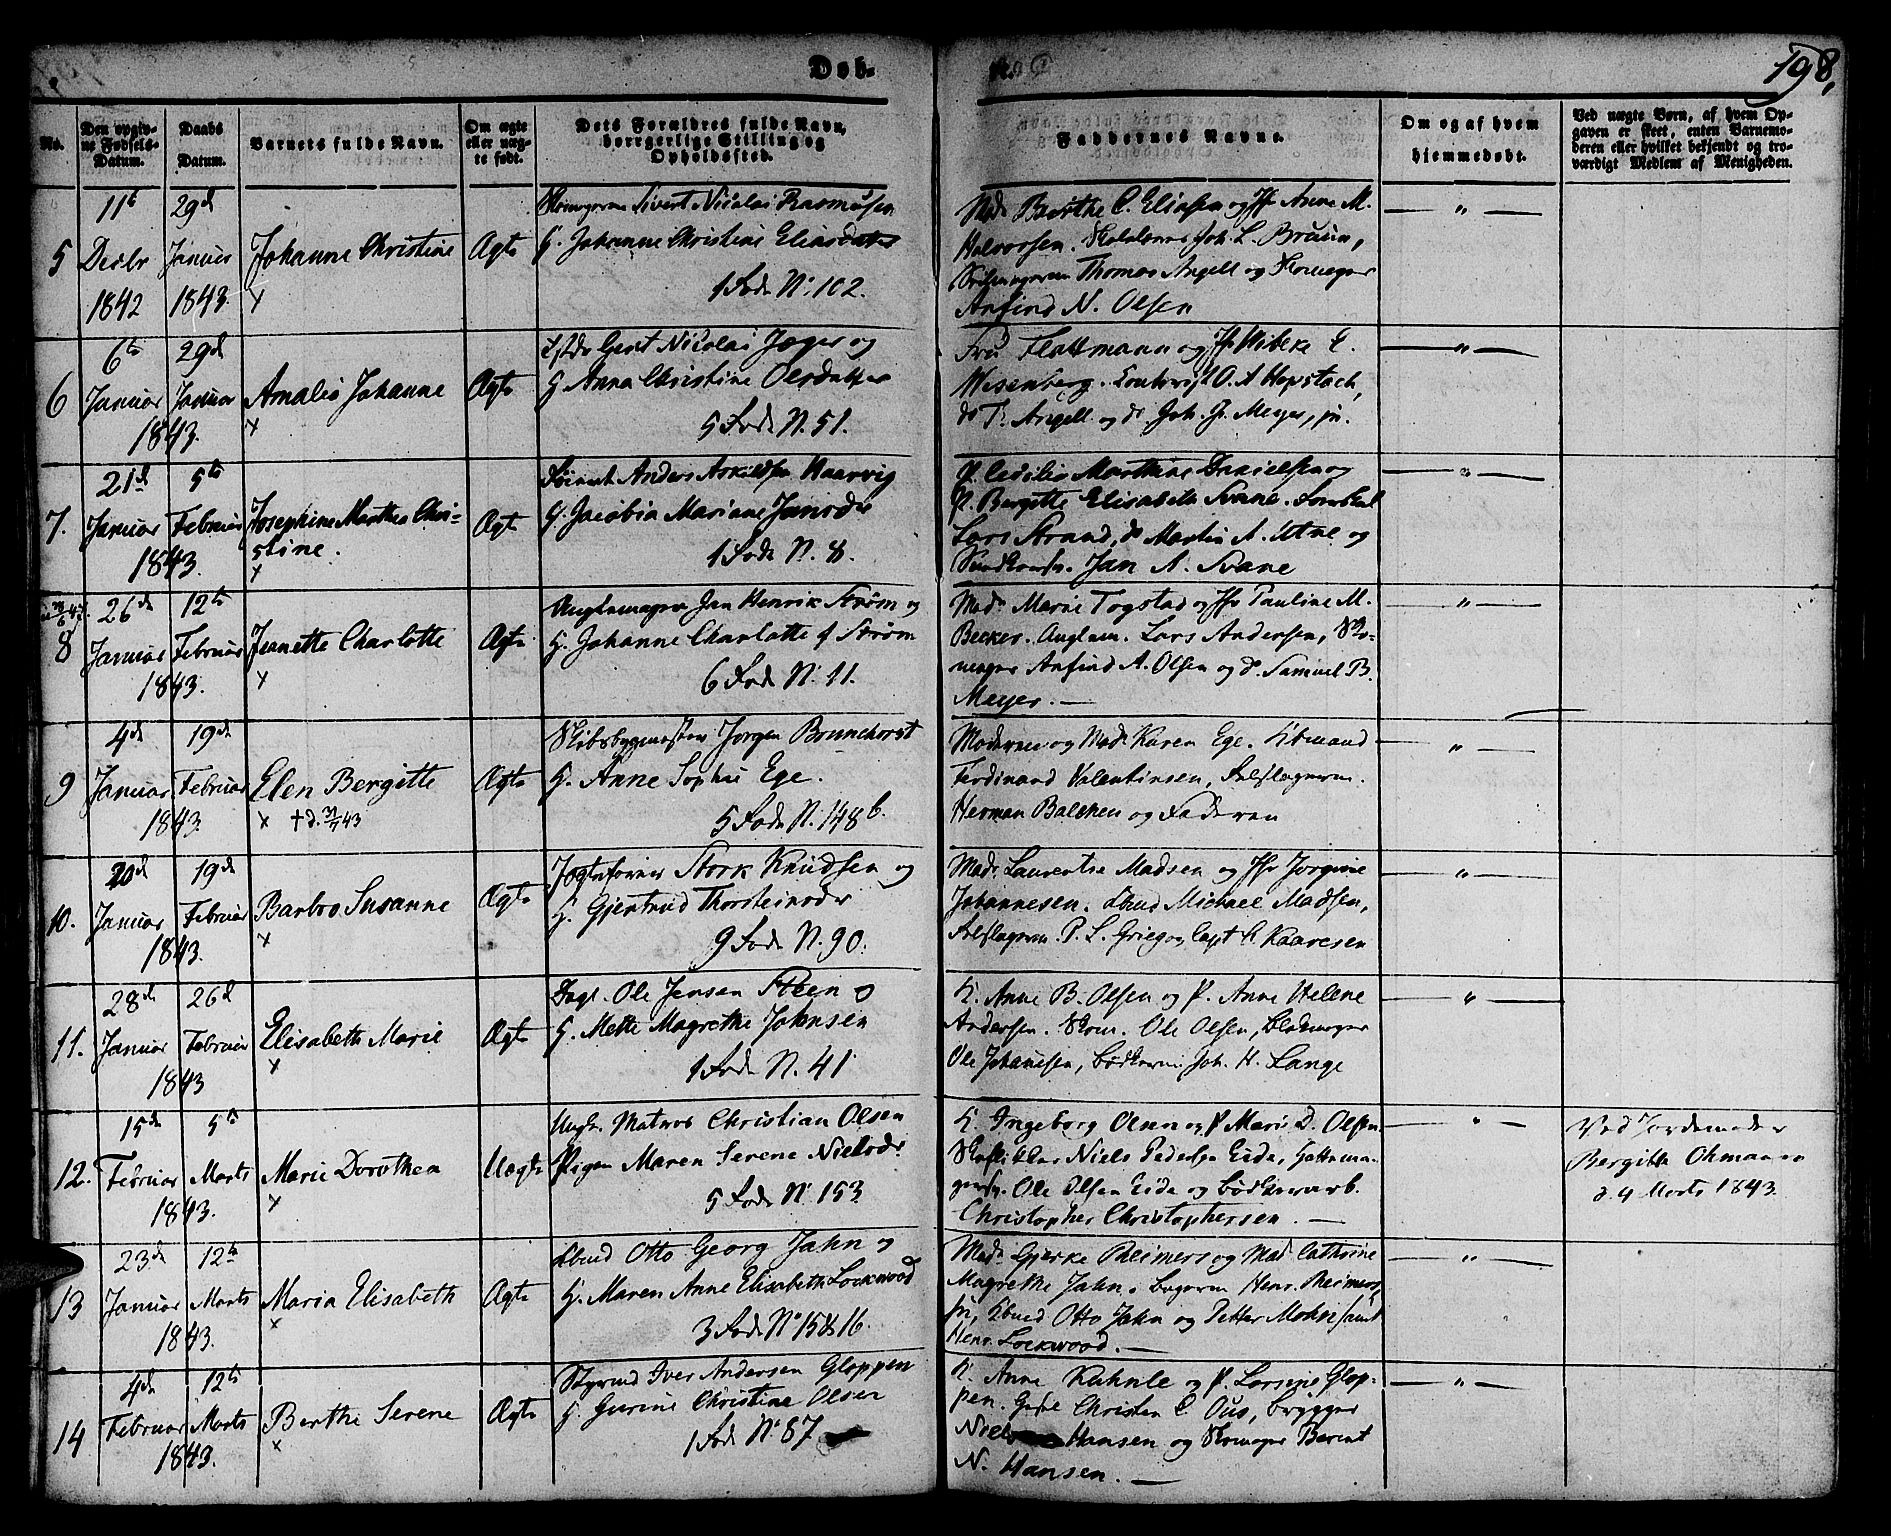 Døb-
198,
No.
Den opgiv-
ne Fødsels-
Datum.
Daabs
Datum.
Barnets fulde Navn.
Om ægte
eller uæg-
te født.
Dets Forældres fulde Navn,
borgerlige Stilling og
Opholdssted.
Faddernes Navne.
Om og af hvem
hjemmedøbt.
Ved uægte Børn, af hvem Op-
gaven er skeet, enten Barnemo-
deren eller hvilket bekjendt og tro-
værdigt Medlem af Menigheden.
5
11te
Decbr
1842
29de
Januar
1843.
Johanne Christine
Ægte
Sivert Nicolai Rasmusen
H. Johanne Christine Eliasdatter
1 Fode N. 102.
Mad. Berthe C. Eliasen og Jfr Anne M.
Halvorsen. Joh. L. Bruun,
Thomas Angell og Skomager
Anfind N. Olsen
6
6te
Januar
29de
Januar
1843.
Amalie Johanne
Ægte
Gert Nicolai Jæger og
H. Anna Christine Olesdatter
5 Fode N. 51.
Fru Flottmann og Jfr Wibeke E.
Wesenberg. O. A. Hopstock,
do T. Angell og do Joh. Jr. Meyer, jn.
7.
21de
Januar
5te
Februar
1843.
Josephine Marthea Chri-
stine.
Ægte
Anders Askildsen Haarvig
H. Jacobia Mariane Jansdr
1 Fode N. 8.
P. Cecilie Marthine Danielsen og
P. Bergitte Elisabeth Svane.
Lars Strand, do Martin A. Utne og
Jan A. Svane
8
26de
Januar
12te
Februar
1843.
Jeanette Charlotte
Ægte
Jan Henrik Strøm og
H. Johanne Charlotte f Strøm
6 Fode N. 11.
Mad. Marie Togstad og Jfr Pauline M.
Becker. Lars Andersen, Sko-
mager Anfind A. Olsen og do Samuel B.
Meyer. —
9
4de
Januar
19de
Februar
1843.
Elen Bergitte
† d. 31/7 43
Ægte
Skibsbygmester Jørgen Brunchorst
H. Anne Sophie Ege.
5 Fode N. 148 b.
Moderen og Mad. Karen Ege. Kbmand
Ferdinand Valentinsen,
Herman Balchen og Faderen
10.
20de
Januar
19de
Februar
1843.
Barbro Susanne
Ægte
Stork Knudsen og
H. Gjertrud Thorsteinsdr
9 Fode N. 90.
Mad. Laurentse Madsen og Jfr Jorgine
Johannesen. Michael Madsen,
P. L. Grieg og Capt C. Kaaresen
11.
28de
Januar
26de
Februar
1843
Elisabeth Marie
Ægte
Dagl. Ole Jensen Steen og
H. Mette Magrethe Johnsen
1 Fode N. 41
K. Anne B. Olsen og P. Anne Helene
Andersen. Skom. Ole Olsen, Blokmager
Ole Johanesen, Bødkersv. Joh. H. Lange
12.
15de
Februar
5te
Marts
1843.
Marie Dorothea
Uægte
Ungk. Matros Christian Olsen
Pigen Maren Serene Nielsdr
5 Fode N. 153
K. Ingeborg Olsen og P. Marie D. Olsen
Skoflikker Niels Pedersen Eide, Hattema-
gersv. Ole Olsen Eide og Bødkersvarb.
Christopher Christophersen. —
Ved Jordemoder
Bergitte Ohmann
d. 4 Marts 1843.
13
23de
Januar
12te
Marts
1843.
Maria Elisabeth
Ægte
Otto Georg Jahn og
H. Maren Anne Elisabeth Lockwood
3 Fode No 15 & 16.
Mad. Gjerke Reimers og Mad. Cathrine
Magrethe Jahn. Henr. Reimers
jn, Otto Jahn og Petter Mohn samt
Henr. Lockwood. —
14
4de
Februar
12te
Marts
1843.
Berthe Serene
Ægte
Styrmd Iver Andersen Gloppen
H. Gurine Christine Olsen
1 Fode No 87
K. Anne Kahnle og P. Lorsine Glop-
pen. Christen C. Ous, Brygger
Niels Hansen og Skomager Berent
N. Hansen. —